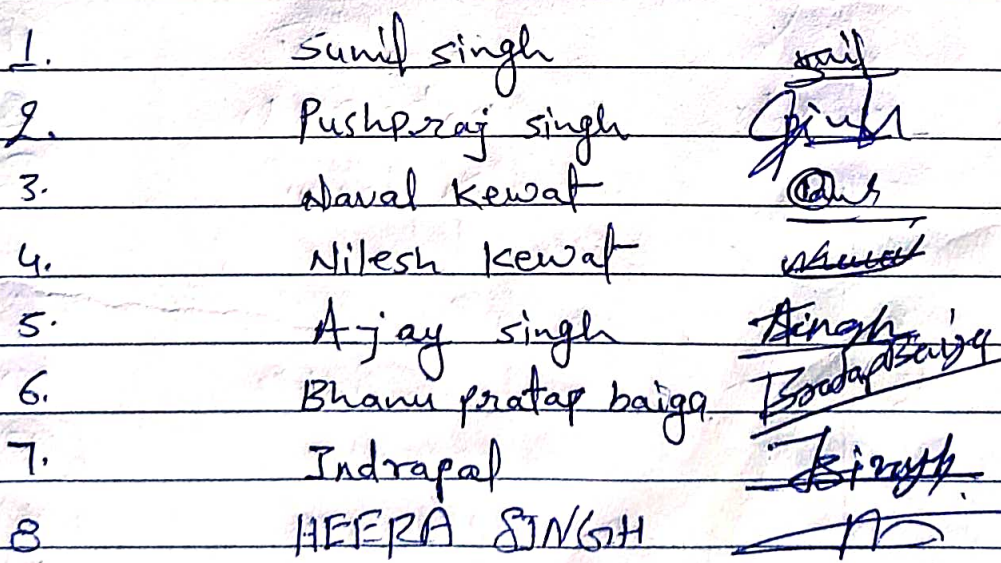 1. Sunil singh
2. Pushpraj singh
3. Naval Kewat
4. Nilesh Kewat
5. Ajay singh Asingh
6. Bhanu pratap baiga
7. Indrapal
8 HEERA SINGH